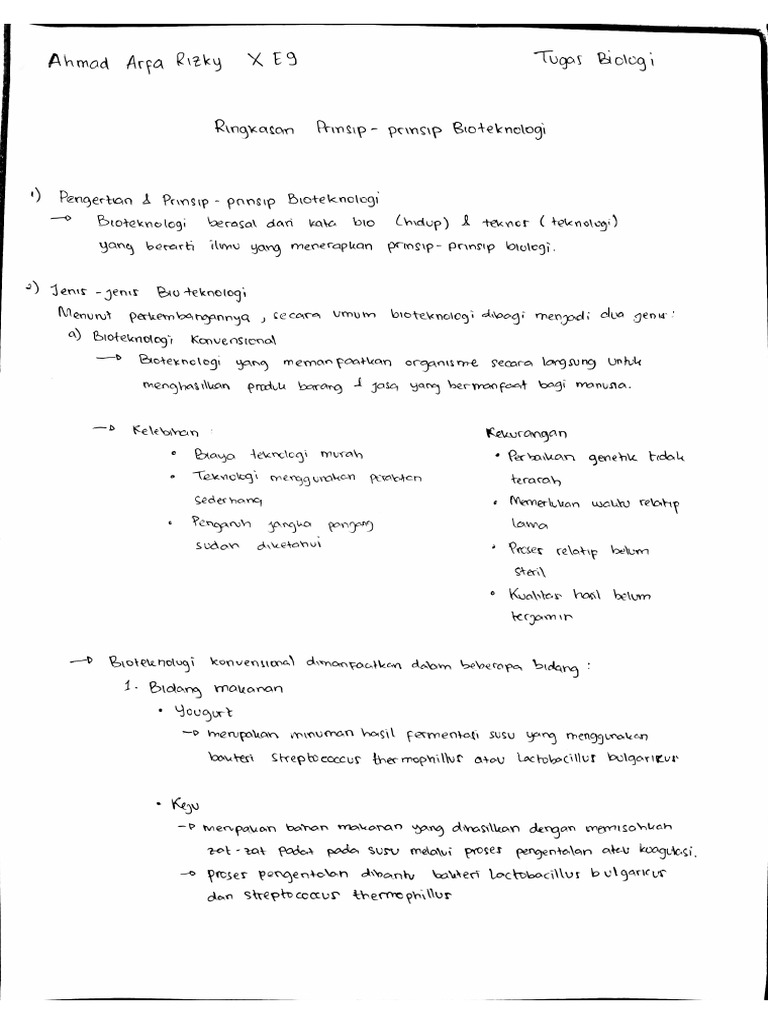 Ahmad Arfa Rizky X E9
Tugas Biologi
Ringkasan Prinsip - prinsip Bioteknologi
1) Pengertian & Prinsip - prinsip Bioteknologi
→ Bioteknologi berasal dari kata bio (hidup) & teknos (teknologi)
yang berarti ilmu yang menerapkan prinsip - prinsip biologi.
2) Jenis - jenis Bioteknologi
Menurut perkembangannya, secara umum bioteknologi dibagi menjadi dua jenis :
a) Bioteknologi Konvensional
→ Bioteknologi yang memanfaatkan organisme secara langsung untuk
menghasilkan produk barang & jasa yang bermanfaat bagi manusia.
→ Kelebihan :
• Biaya teknologi murah
• Teknologi menggunakan peralatan
sederhana
• Pengaruh jangka panjang
sudah diketahui
Kekurangan
• Perbaikan genetik tidak
terarah
• Memerlukan waktu relatip
lama
• Proses relatip belum
steril
• Kualitas hasil belum
terjamin
→ Bioteknologi konvensional dimanfaatkan dalam beberapa bidang :
1. Bidang makanan
• Yougurt
→ merupakan minuman hasil fermentasi susu yang menggunakan
bakteri Streptococcus thermophillus atau Lactobacillus bulgaricus
• Keju
→ merupakan bahan makanan yang dihasilkan dengan memisahkan
zat - zat padat pada susu melalui proses pengentalan atau koagulasi.
→ proses pengentalan dibantu bakteri Lactobacillus bulgaricus
dan streptococcus thermophillus